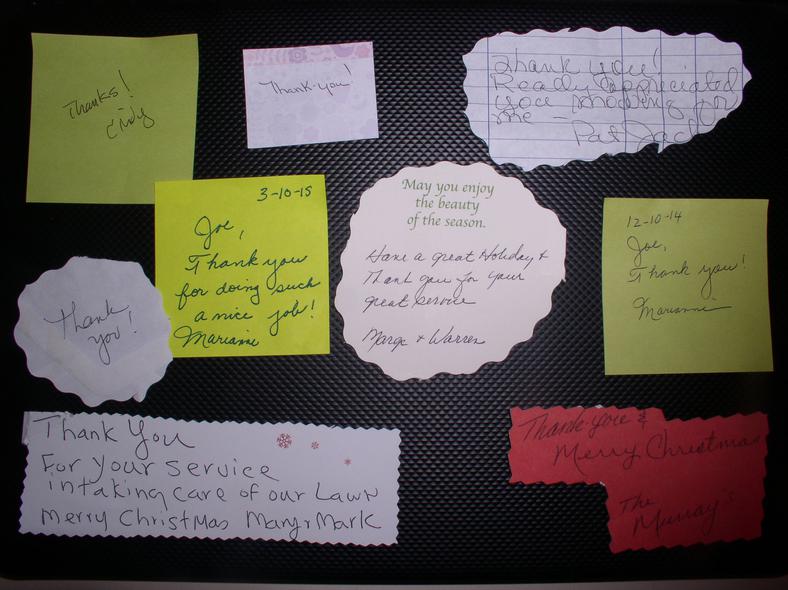 Thanks!
Cindy
Thank-you!
Thank you!
Really appreciated
you shoping for
me —
Pat Jach
3-10-15
Joe,
Thank you
for doing such
a nice job!
Marianne
May you enjoy
the beauty
of the season.
Have a great Holiday &
Thank you for your
great service
Marge + Warren
12-10-14
Joe,
Thank you!
Marianne
Thank
you!
Thank You
For Your Service
in taking care of our Lawn
Merry Christmas Mary + Mark
Thank-you &
Merry Christmas
The
Murray's